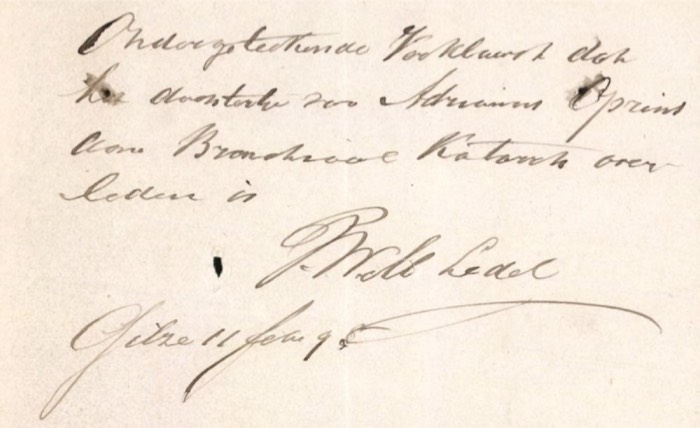 Ondergeteekende Verklaart dat
het doosteke zoo Adrianus Oprins
aan Bronchiaal Katarrh over
leden is
P. Well Ledel
Gilze 11 feb 95